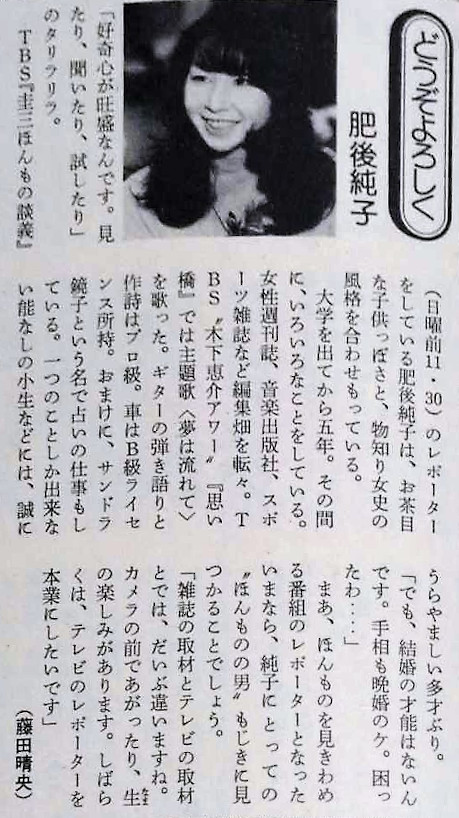 どうぞよろしく
肥後純子
「好奇心が旺盛なんです。見
たり、聞いたり、試したり」
のタリラリラ。
　TBS『圭三ほんもの談義』
（日曜前11・30）のレポーター
をしている肥後純子は、お茶目
な子供っぽさと、物知り女史の
風格を合わせもっている。
　大学を出てから五年。その間
に、いろいろなことをしている。
女性週刊誌、音楽出版社、スポ
ーツ雑誌など編集畑を転々。T
BS〝木下恵介アワー〟『思い
橋』では主題歌〈夢は流れて〉
を歌った。ギターの弾き語りと
作詩はプロ級。車はB級ライセ
ンス所持。おまけに、サンドラ
鏡子という名で占いの仕事もし
ている。一つのことしか出来な
い能なしの小生などには、誠に
うらやましい多才ぶり。
「でも、結婚の才能はないん
です。手相も晩婚のケ。困っ
たわ‥‥」
　まあ、ほんものを見きわめ
る番組のレポーターとなった
いまなら、純子にとっての
〝ほんものの男〟もじきに見
つかることでしょう。
「雑誌の取材とテレビの取材
とでは、だいぶ違いますね。
カメラの前であがったり、生
なま
の楽しみがあります。しばら
くは、テレビのレポーターを
本業にしたいです」
（藤田晴央）